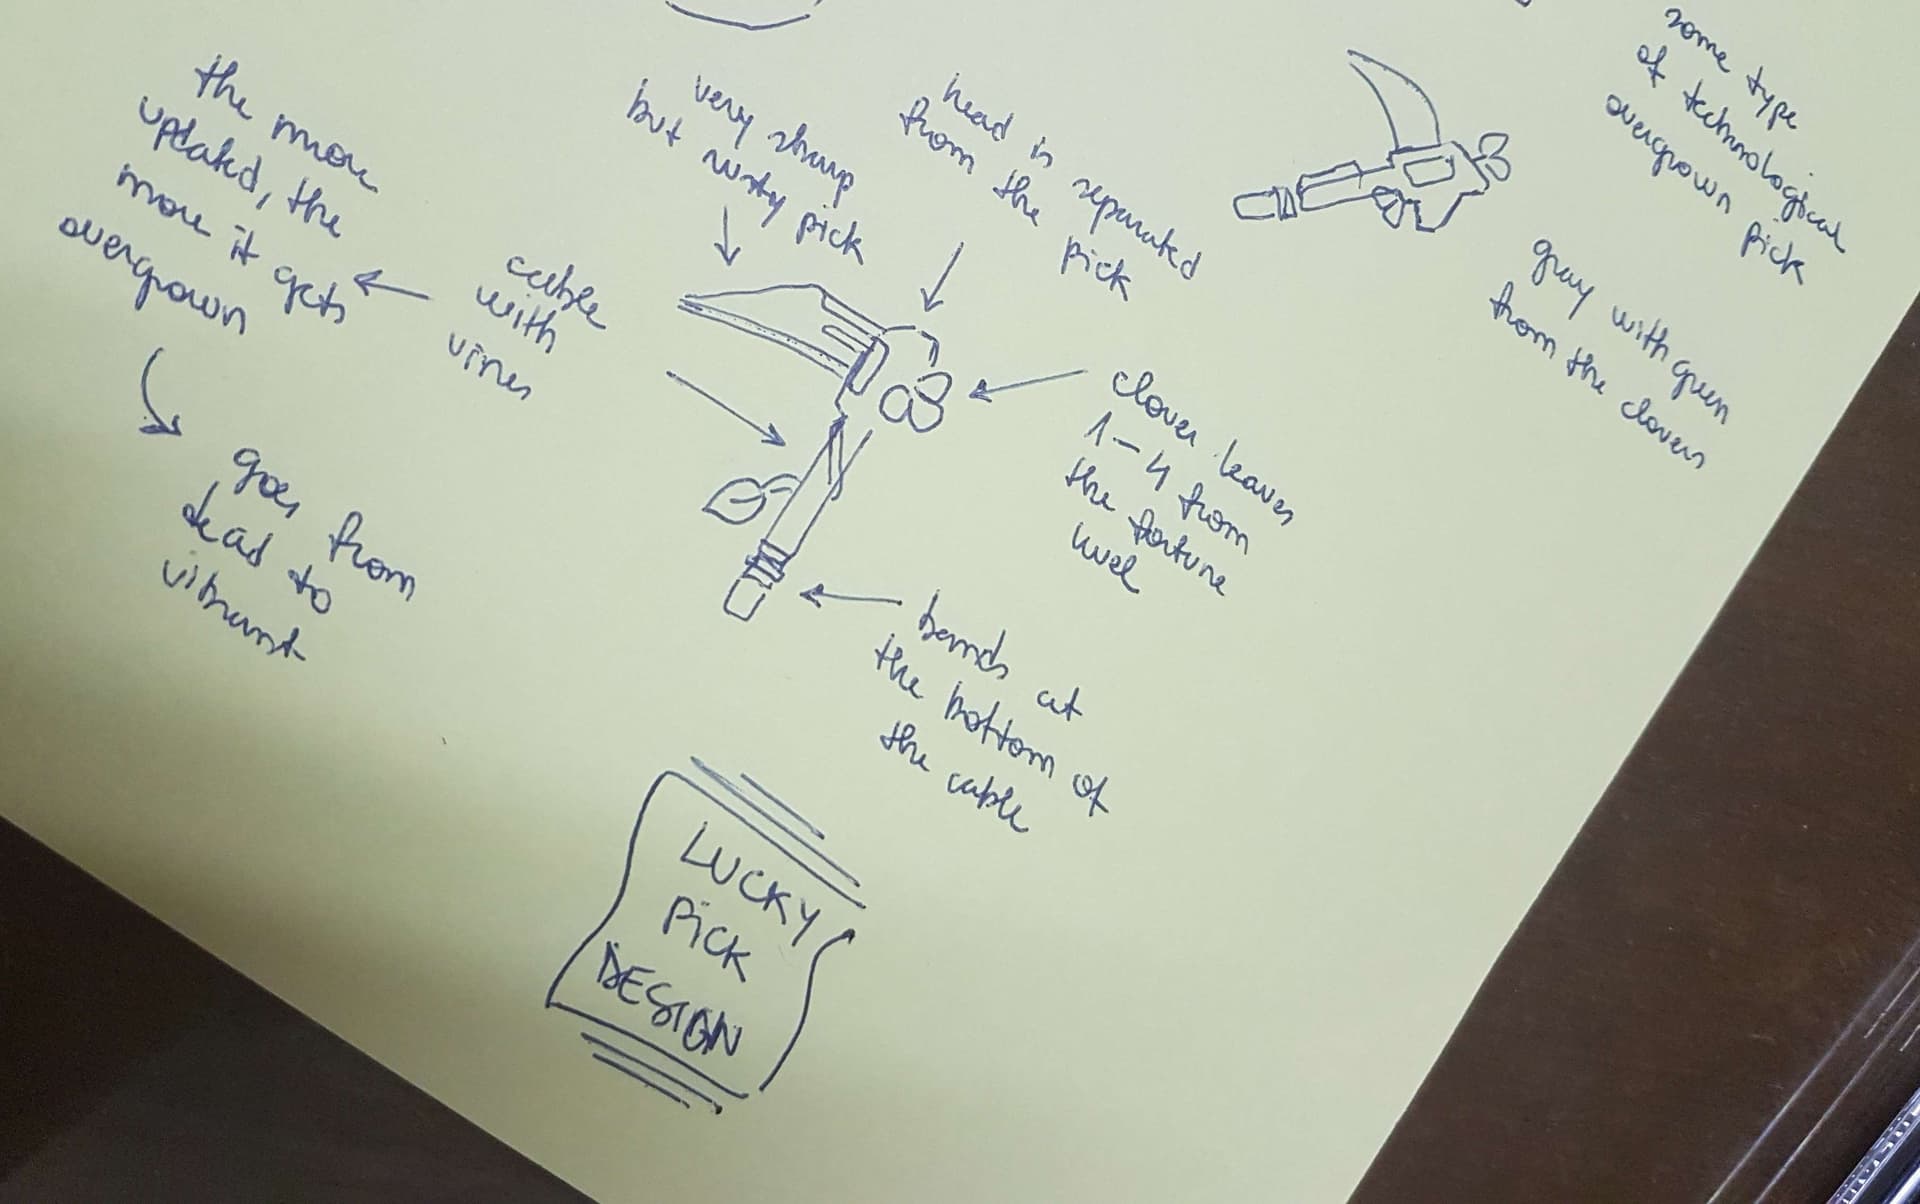 some type
of technological
overgrown
pick
gray with green
from the clovers
head is separated
from the
pick
very sharp
but rusty pick
the more
updated, the
more it gets
overgrown
cable
with
vines
goes from
dead to
vibrant
clover leaves
1-4 from
the fortune
level
bands at
the bottom of
the cable
LUCKY
PiCK
DESIGN